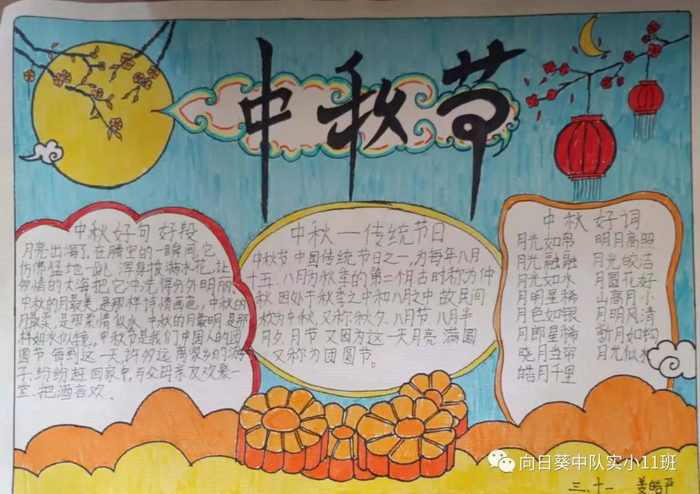 中秋节
中秋好句 好段
月亮出海了，在腾空的一瞬间，它
仿佛猛地一跳，浑身披满水花，让
多情的大海把它冲洗得分外明丽。
中秋的月最美，是那样诗情画意，中秋的
月最柔，是那柔情似水，中秋的月最明，是那
样如水似镜，中秋节是我们中国人的团
圆节，每到这一天，许多远离家乡的游
子，纷纷赶回家中，与父母亲友欢聚一
空，把酒言欢。
中秋—传统节日
中秋节，中国传统节日之一，为每年八月
十五，八月为秋季的第二个月，古时称为仲
秋，因处于秋季之中和八月之中，故民间
称为中秋，又称秋夕、八月节、八月半
月夕、月节，又因为这一天月亮满圆
又称为团圆节。
中秋好词
月光如帘 明月高照
月光融融 月光皎洁
月光如水 月圆花好
月明星稀 山高月小
月色如银 月明风清
月郎星稀 新月如钩
晓月当帘 月光似水
皓月千里
向日葵中队实小11班
三.十一 姜皓严